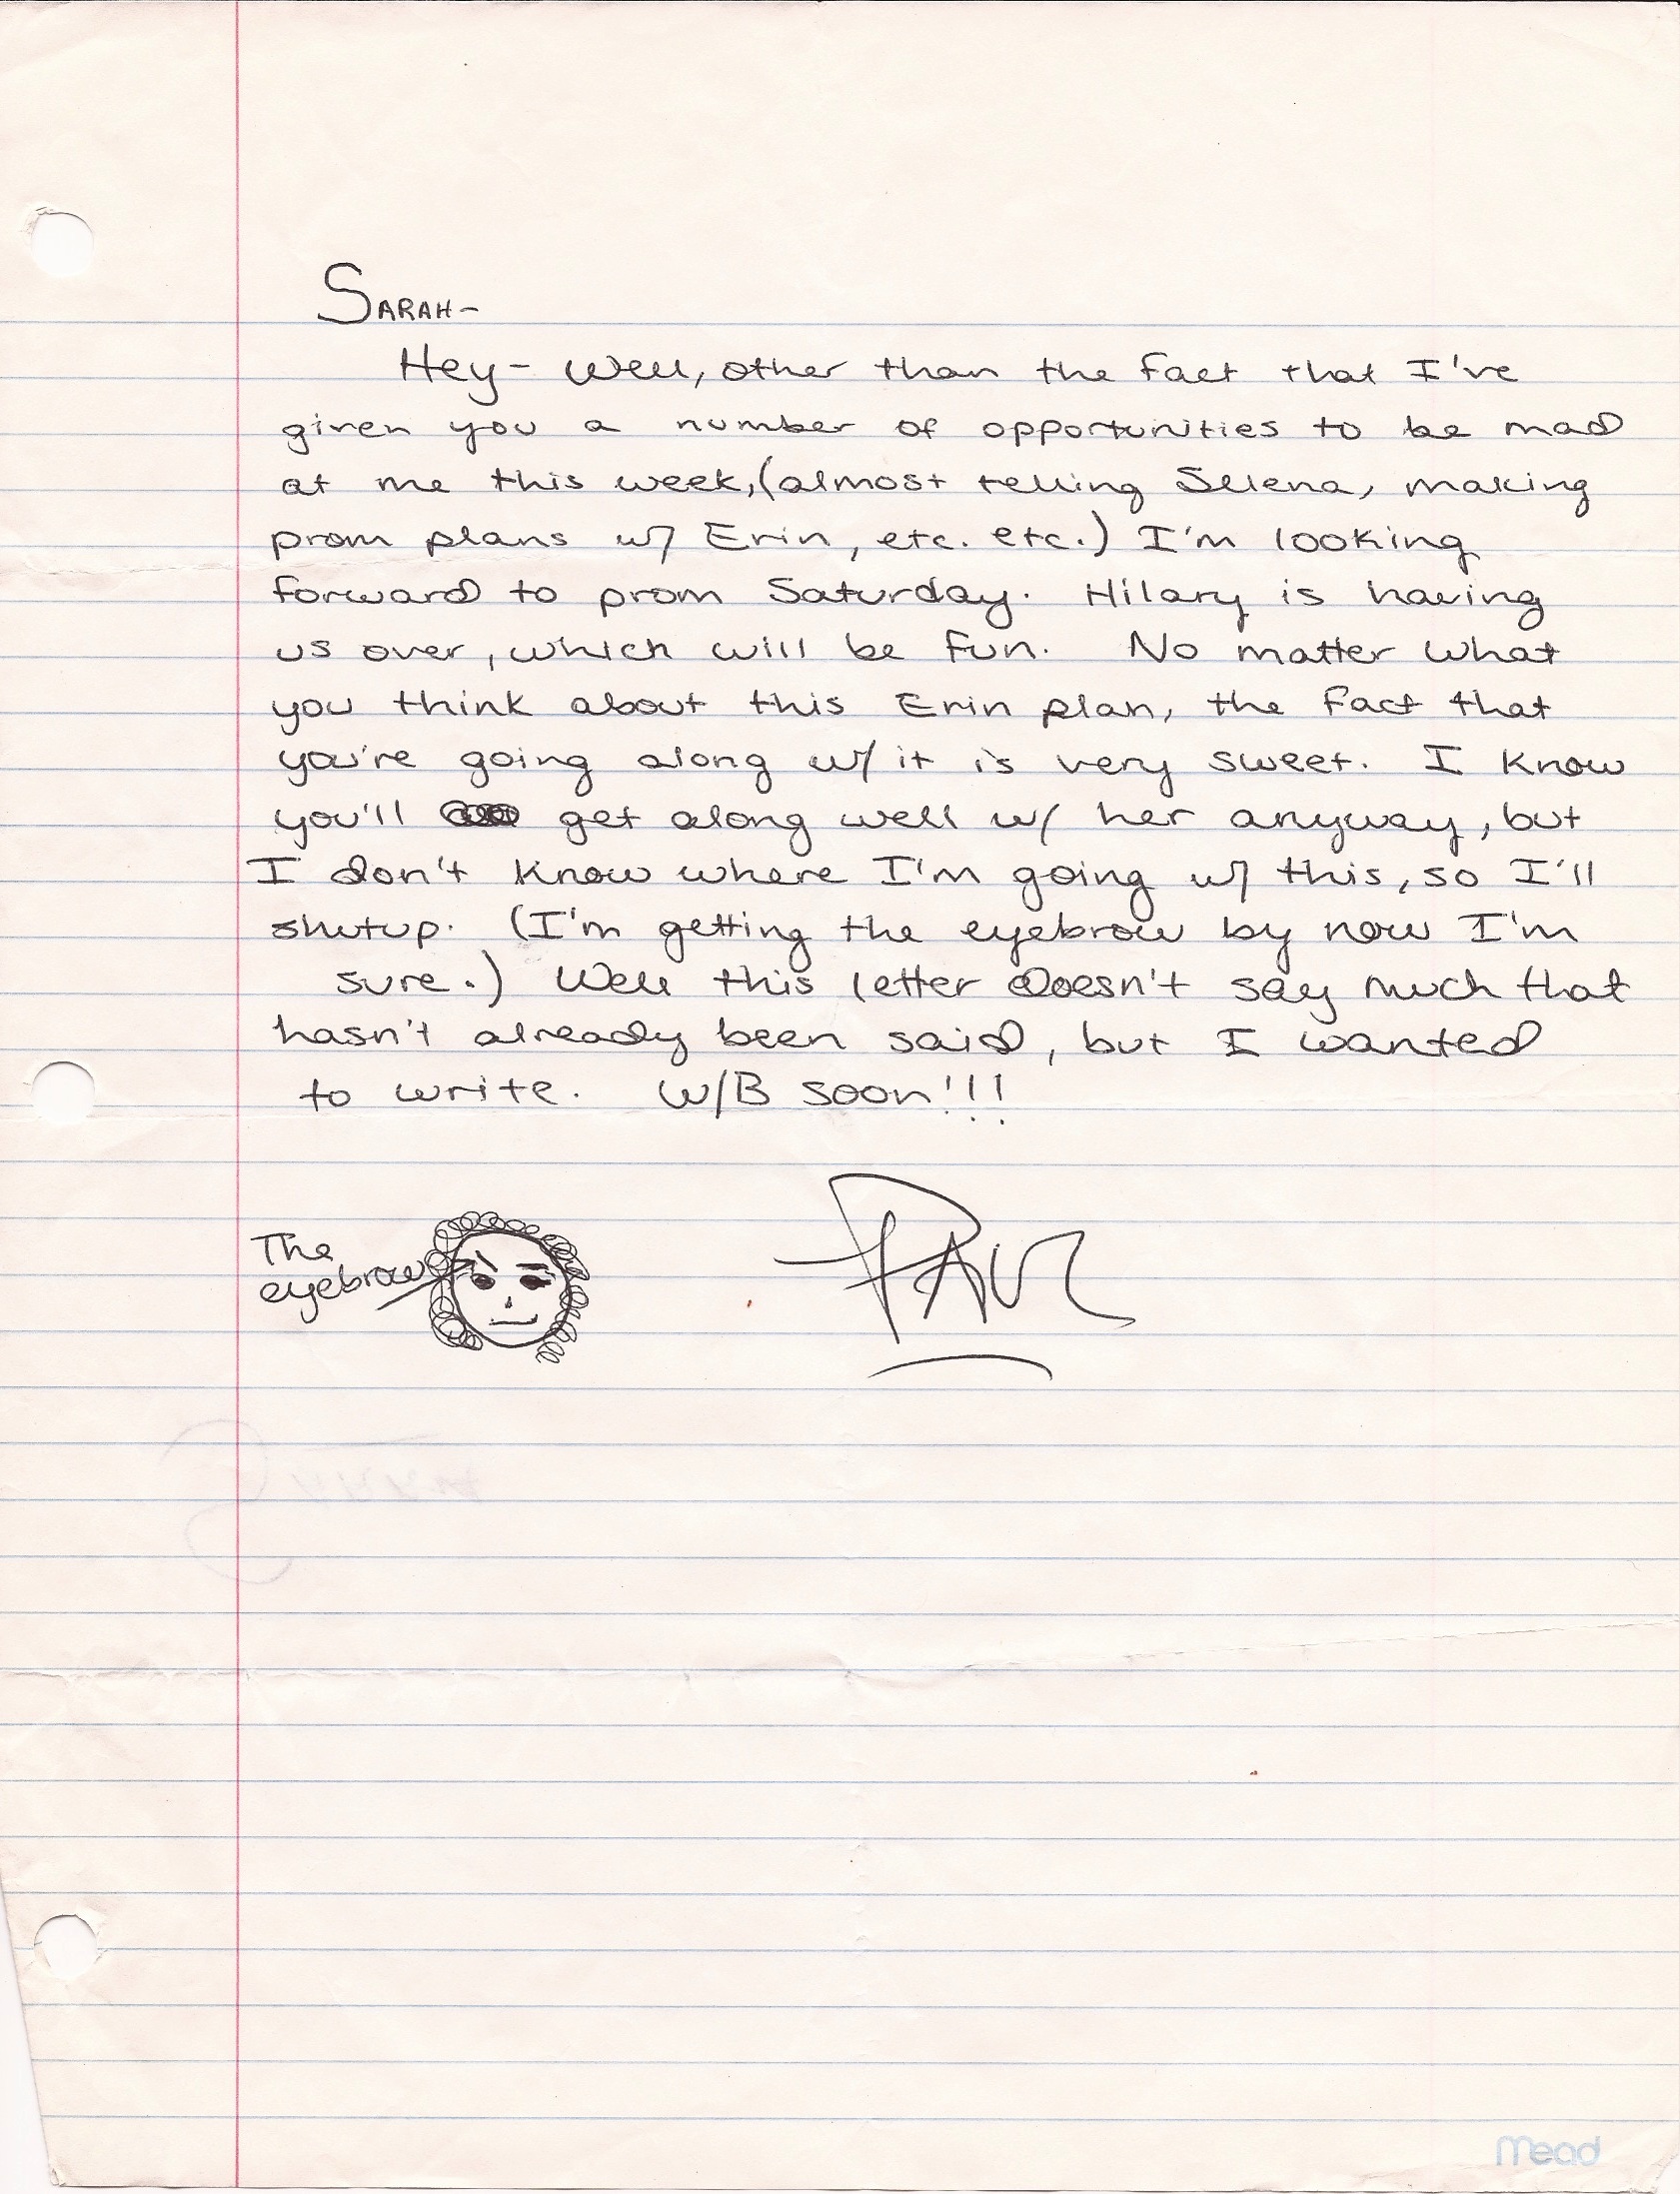 SARAH-
Hey- Well, other than the fact that I've
given you a number of opportunities to be mad
at me this week, (almost telling Selena, making
prom plans w/ Erin, etc. etc.) I'm looking
forward to prom Saturday. Hilary is having
us over, which will be fun. No matter what
you think about this Erin plan, the fact that
you're going along w/ it is very sweet. I know
you'll get along well w/ her anyway, but
I don't know where I'm going w/ this, so I'll
shutup. (I'm getting the eyebrow by now I'm
sure.) Well this letter doesn't say much that
hasn't already been said, but I wanted
to write. W/B soon!!!
The
eyebrow
PAUL
Mead